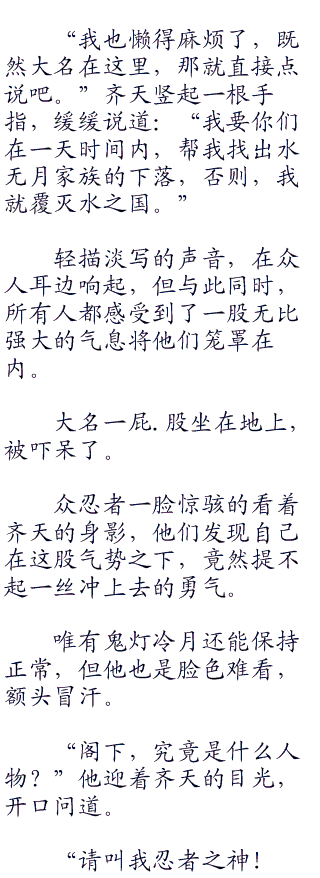 “我也懒得麻烦了，既
然大名在这里，那就直接点
说吧。”齐天竖起一根手
指，缓缓说道：“我要你们
在一天时间内，帮我找出水
无月家族的下落，否则，我
就覆灭水之国。”
轻描淡写的声音，在众
人耳边响起，但与此同时，
所有人都感受到了一股无比
强大的气息将他们笼罩在
内。
大名一屁.股坐在地上，
被吓呆了。
众忍者一脸惊骇的看着
齐天的身影，他们发现自己
在这股气势之下，竟然提不
起一丝冲上去的勇气。
唯有鬼灯冷月还能保持
正常，但他也是脸色难看，
额头冒汗。
“阁下，究竟是什么人
物？”他迎着齐天的目光，
开口问道。
“请叫我忍者之神！